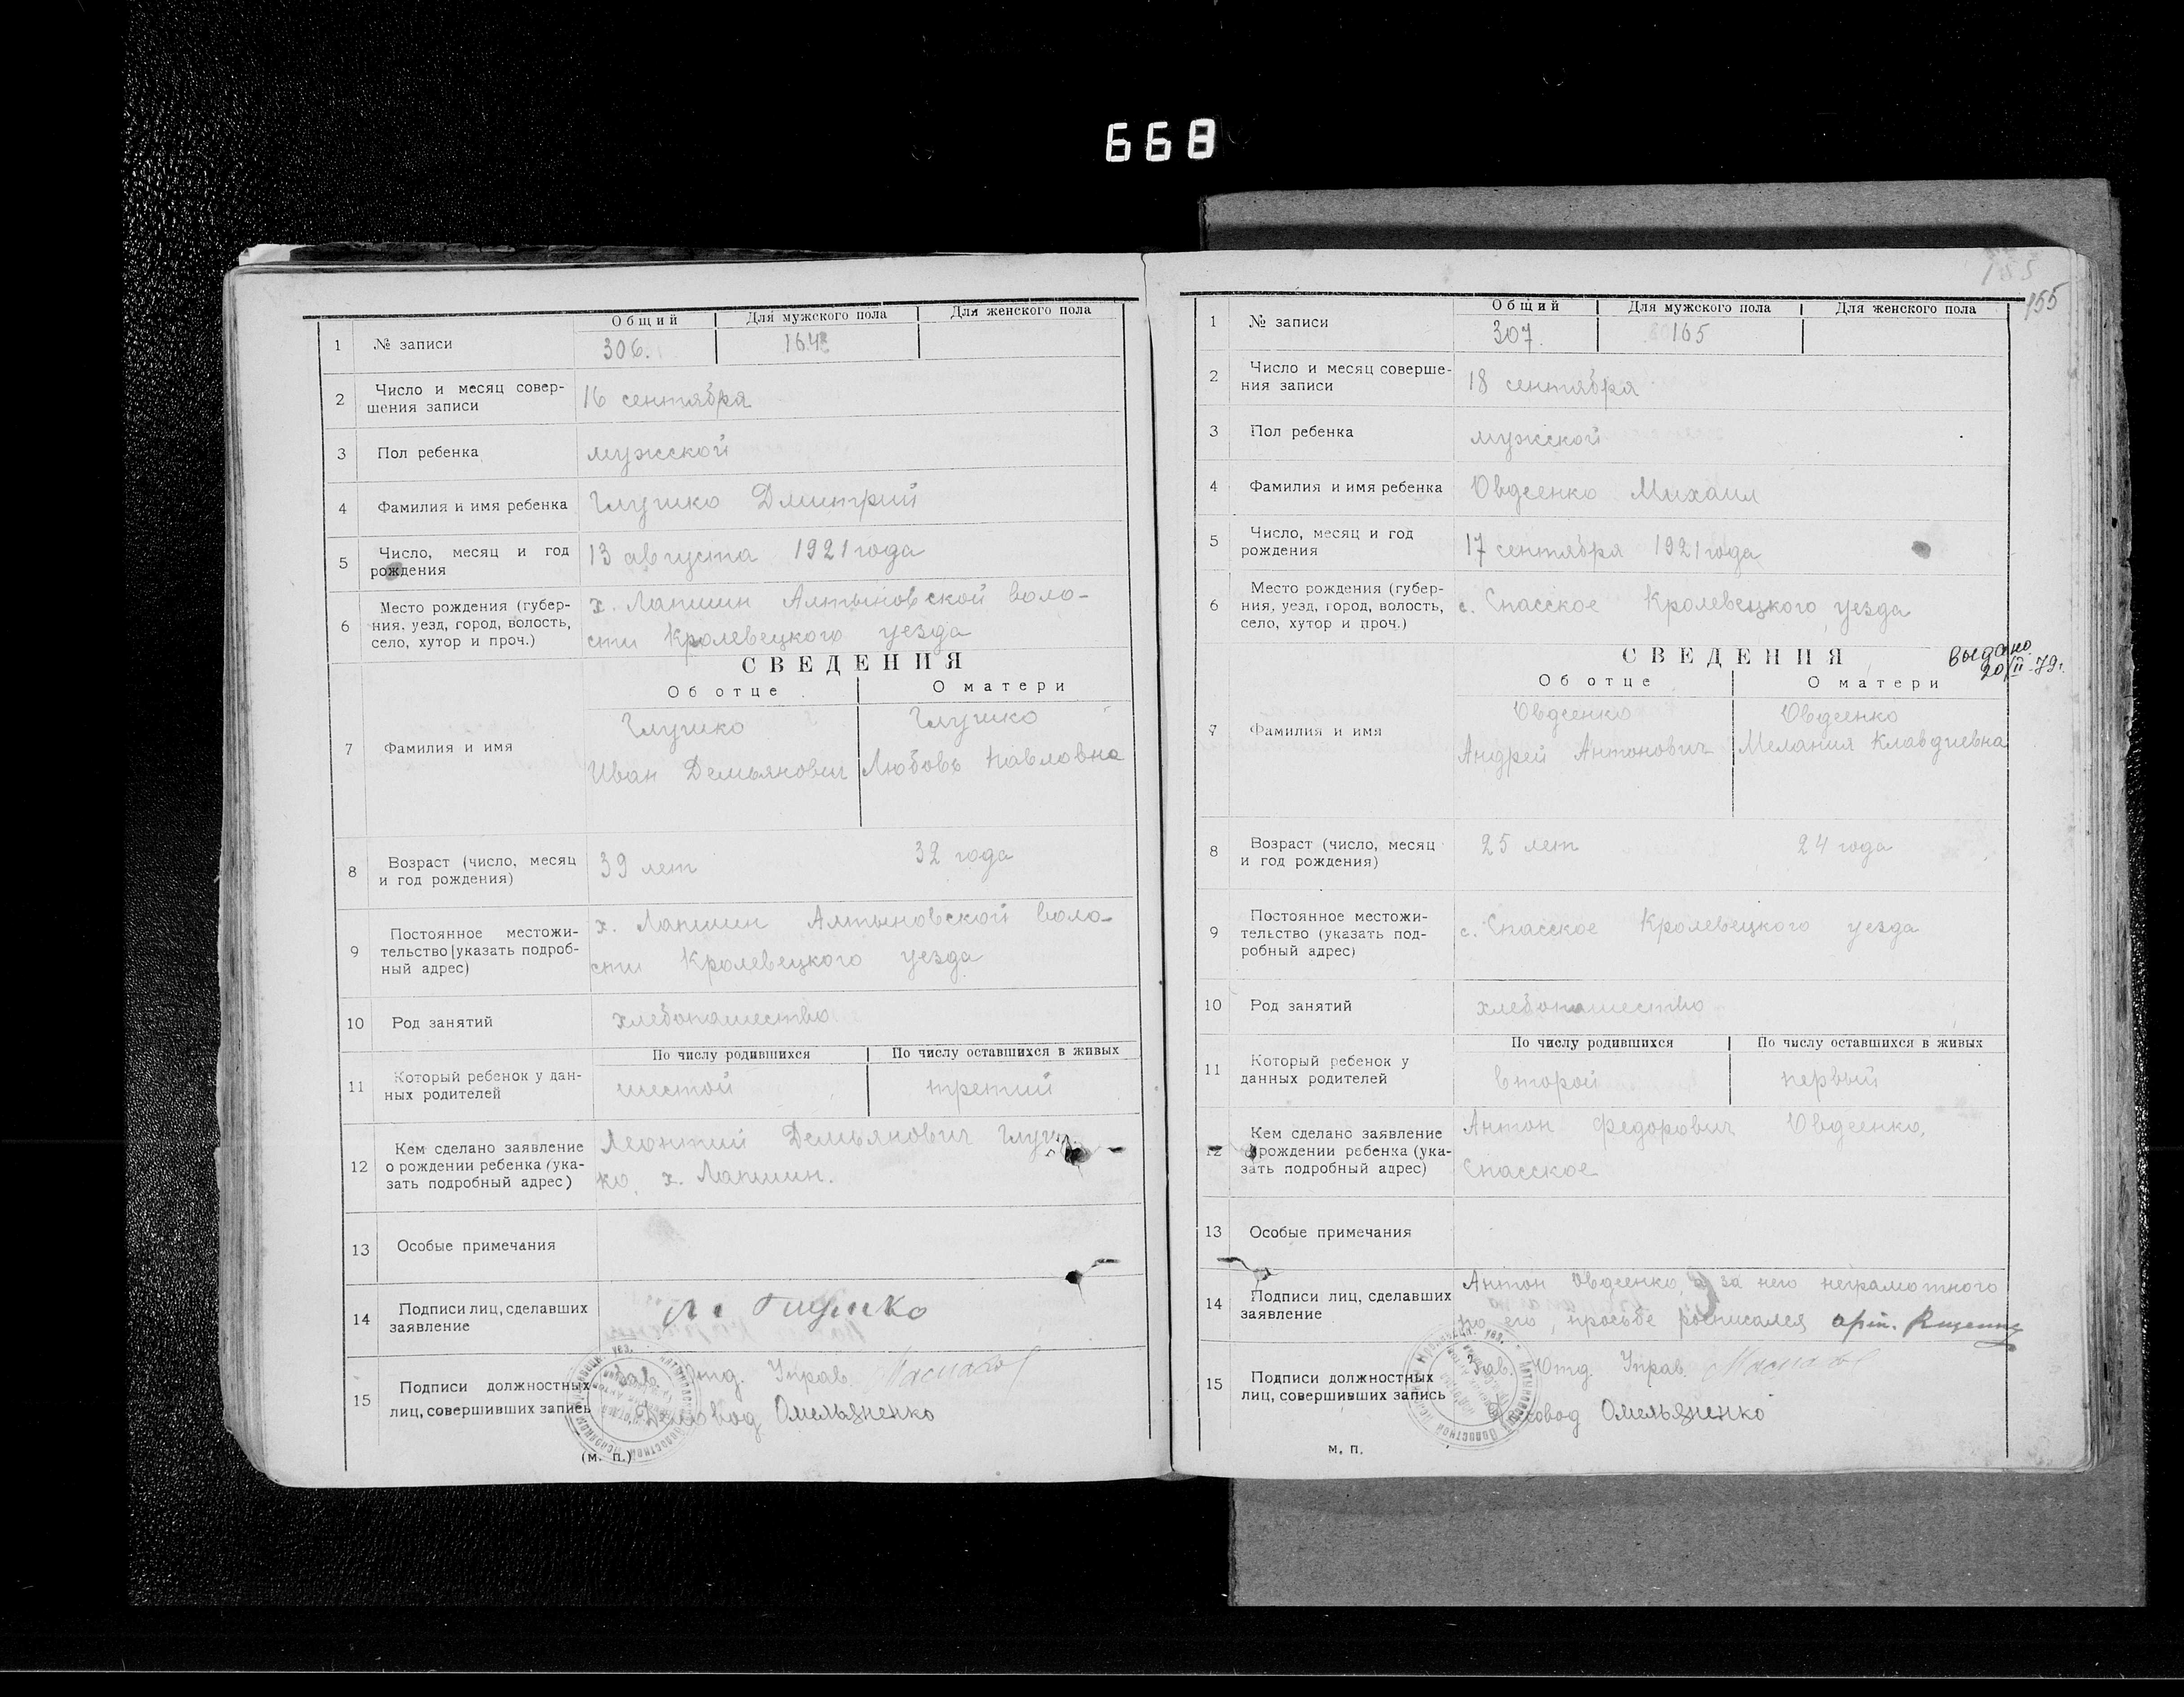 668
Общий Для мужского пола Для женского пола
1 № записи 306. 164
2 Число и месяц совер-
шения записи 16 сентября
3 Пол ребенка мужской
4 Фамилия и имя ребенка Глушко Дмитрий
5 Число, месяц и год
рождения 13 августа 1921 года
6 Место рождения (губер-
ния, уезд, город, волость,
село, хутор и проч.) х. Лапшин Алтыновской воло-
сти Кролевецкого уезда
СВЕДЕНИЯ
Об отце О матери
7 Фамилия и имя
Глушко Глушко
Иван Демьянович Любовь Павловна
8 Возраст (число, месяц
и год рождения) 39 лет 32 года
9 Постоянное местожи-
тельство [указать подроб-
ный адрес) х. Лапшин Алтыновской воло-
сти Кролевецкого уезда
10 Род занятий хлебопашество
По числу родившихся По числу оставшихся в живых
11 Который ребенок у дан-
ных родителей шестой третий
12 Кем сделано заявление
о рождении ребенка (ука-
зать подробный адрес) Леонтий Демьянович Глуш-
ко, х. Лапшин.
13 Особые примечания
14 Подписи лиц, сделавших
заявление Л. Глушко
15 Подписи должностных
лиц, совершивших запись Зав. Отд. Управ.
Деловод Омельяненко
(м. п.)
155
155
Общий Для мужского пола Для женского пола
1 № записи 307. 165
2 Число и месяц соверше-
ния записи 18 сентября
3 Пол ребенка мужской
4 Фамилия и имя ребенка Овдеенко Михаил
5 Число, месяц и год
рождения 17 сентября 1921 года
6 Место рождения (губер-
ния, уезд, город, волость,
село, хутор и проч.) с. Спасское Кролевецкого уезда
выдано
20/II-79г.
СВЕДЕНИЯ
Об отце О матери
7 Фамилия и имя
Овдеенко Овдеенко
Андрей Антонович Мелания Клавдиевна
8 Возраст (число, месяц
и год рождения) 25 лет 24 года
9 Постоянное местожи-
тельство (указать под-
робный адрес) с. Спасское Кролевецкого уезда
10 Род занятий хлебопашество
По числу родившихся По числу оставшихся в живых
11 Который ребенок у
данных родителей второй первый
12 Кем сделано заявление
о рождении ребенка (ука-
зать подробный адрес) Антон Федорович Овдеенко,
Спасское
13 Особые примечания
14 Подписи лиц, сделавших
заявление Антон Овдеенко, а за него неграмотного
по его просьбе росписался
15 Подписи должностных
лиц, совершивших запись Зав. Отд. Управ.
Деловод Омельяненко
м. п.